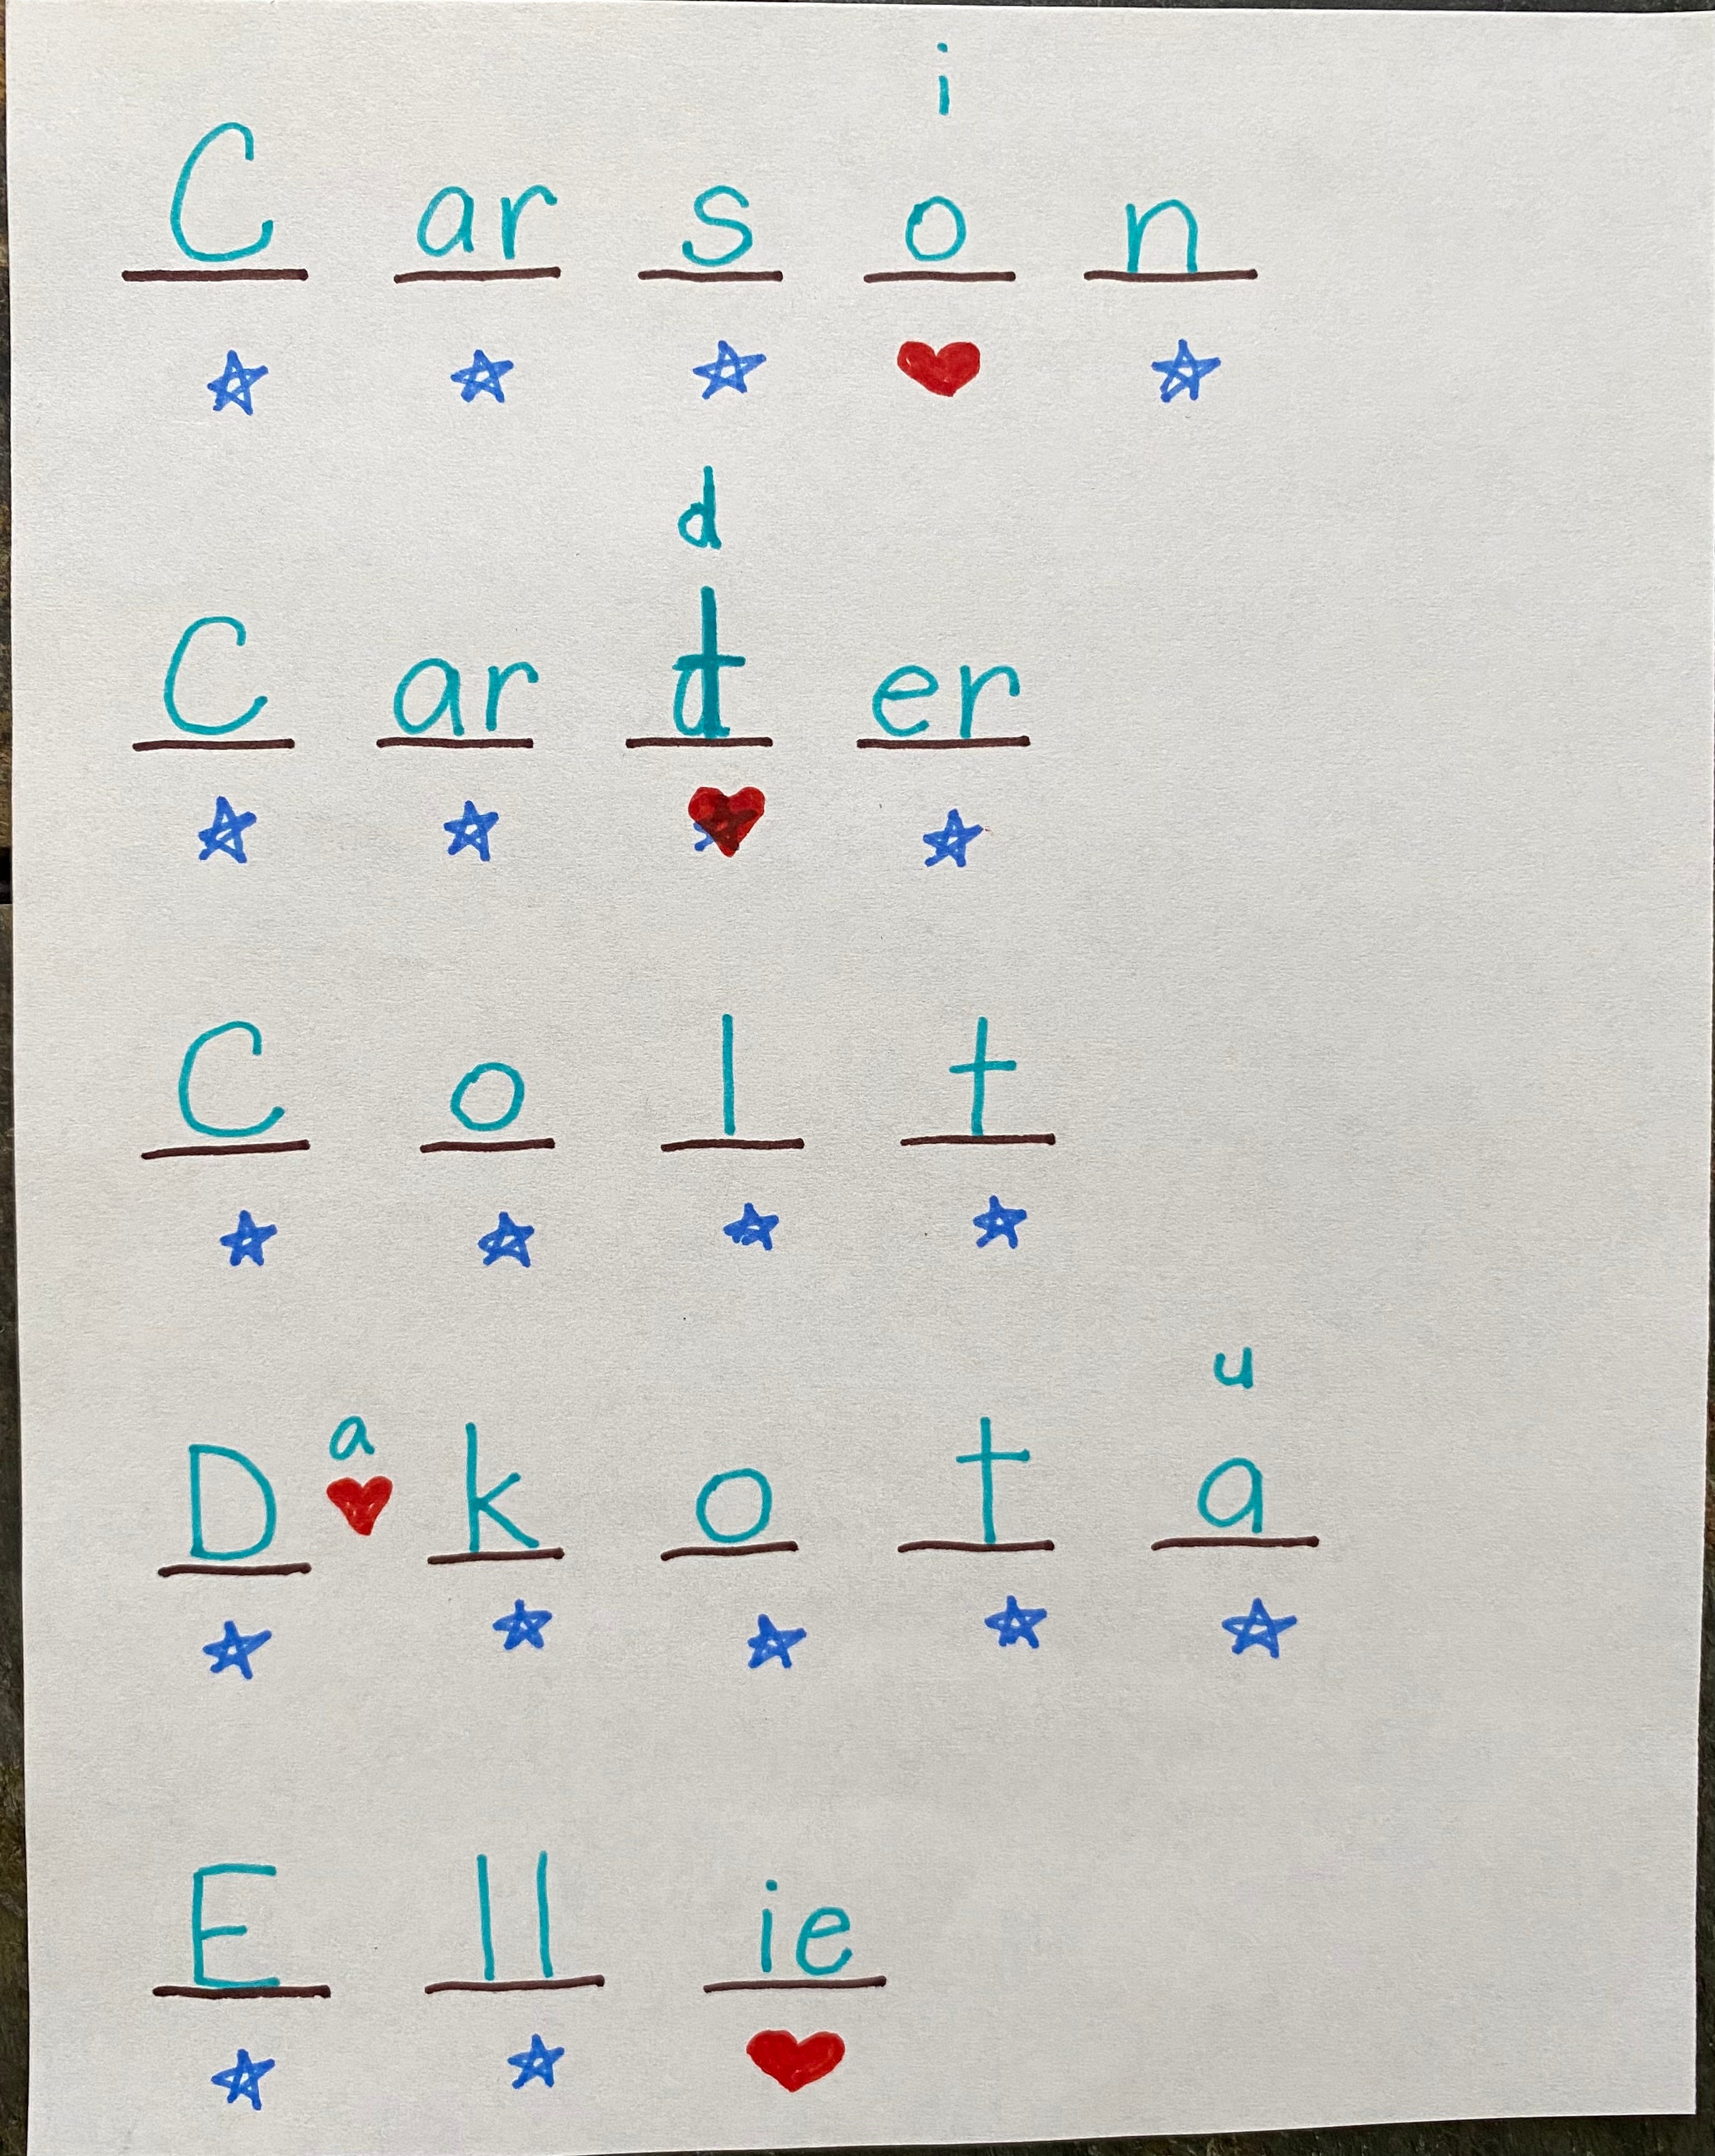 i
C ar s o n
d
C ar t er
C o l t
u
a
D k o t a
E ll ie